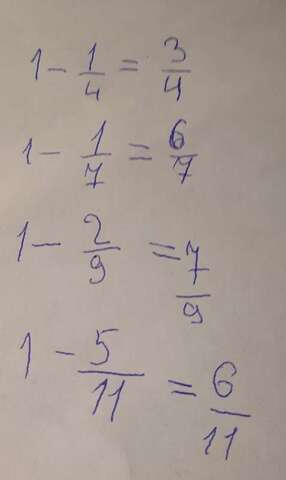 1 - 1/4 = 3/4
1 - 1/7 = 6/7
1 - 2/9 = 7/9
1 - 5/11 = 6/11